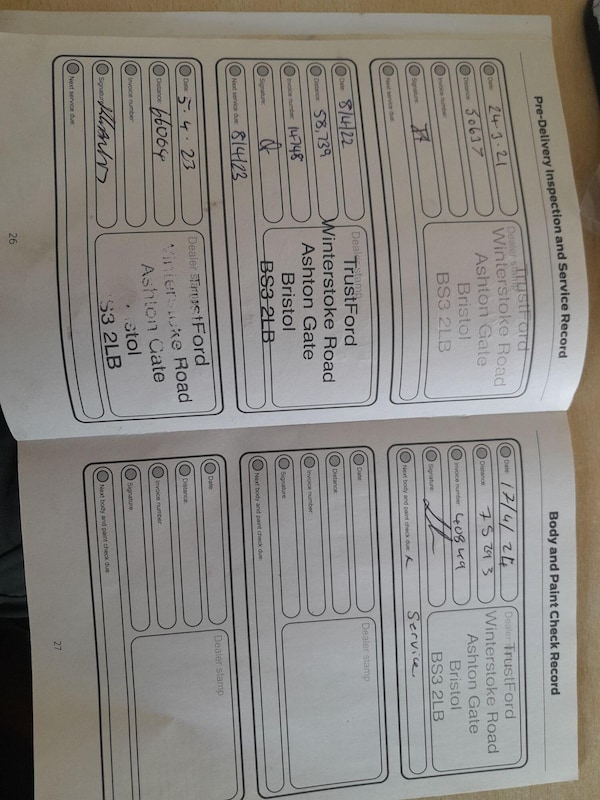 Pre-Delivery Inspection and Service Record
Date: 24.3.21
Distance: 50637
Invoice number:
Signature:
Next service due:
Dealer stamp
TrustFord
Winterstoke Road
Ashton Gate
Bristol
BS3 2LB
Date: 8/4/22
Distance: 58,739
Invoice number: 14748
Signature:
Next service due: 8/4/23
Dealer stamp
TrustFord
Winterstoke Road
Ashton Gate
Bristol
BS3 2LB
Date: 5.4.23
Distance: 66064
Invoice number:
Signature:
Next service due:
Dealer stamp
TrustFord
Winterstoke Road
Ashton Gate
Bristol
BS3 2LB
26
Body and Paint Check Record
Date: 17/4/24
Distance: 75293
Invoice number: 40849
Signature:
Next body and paint check due: Service
Dealer
TrustFord
Winterstoke Road
Ashton Gate
Bristol
BS3 2LB
Date:
Distance:
Invoice number:
Signature:
Next body and paint check due:
Dealer stamp
Date:
Distance:
Invoice number:
Signature:
Next body and paint check due:
Dealer stamp
27